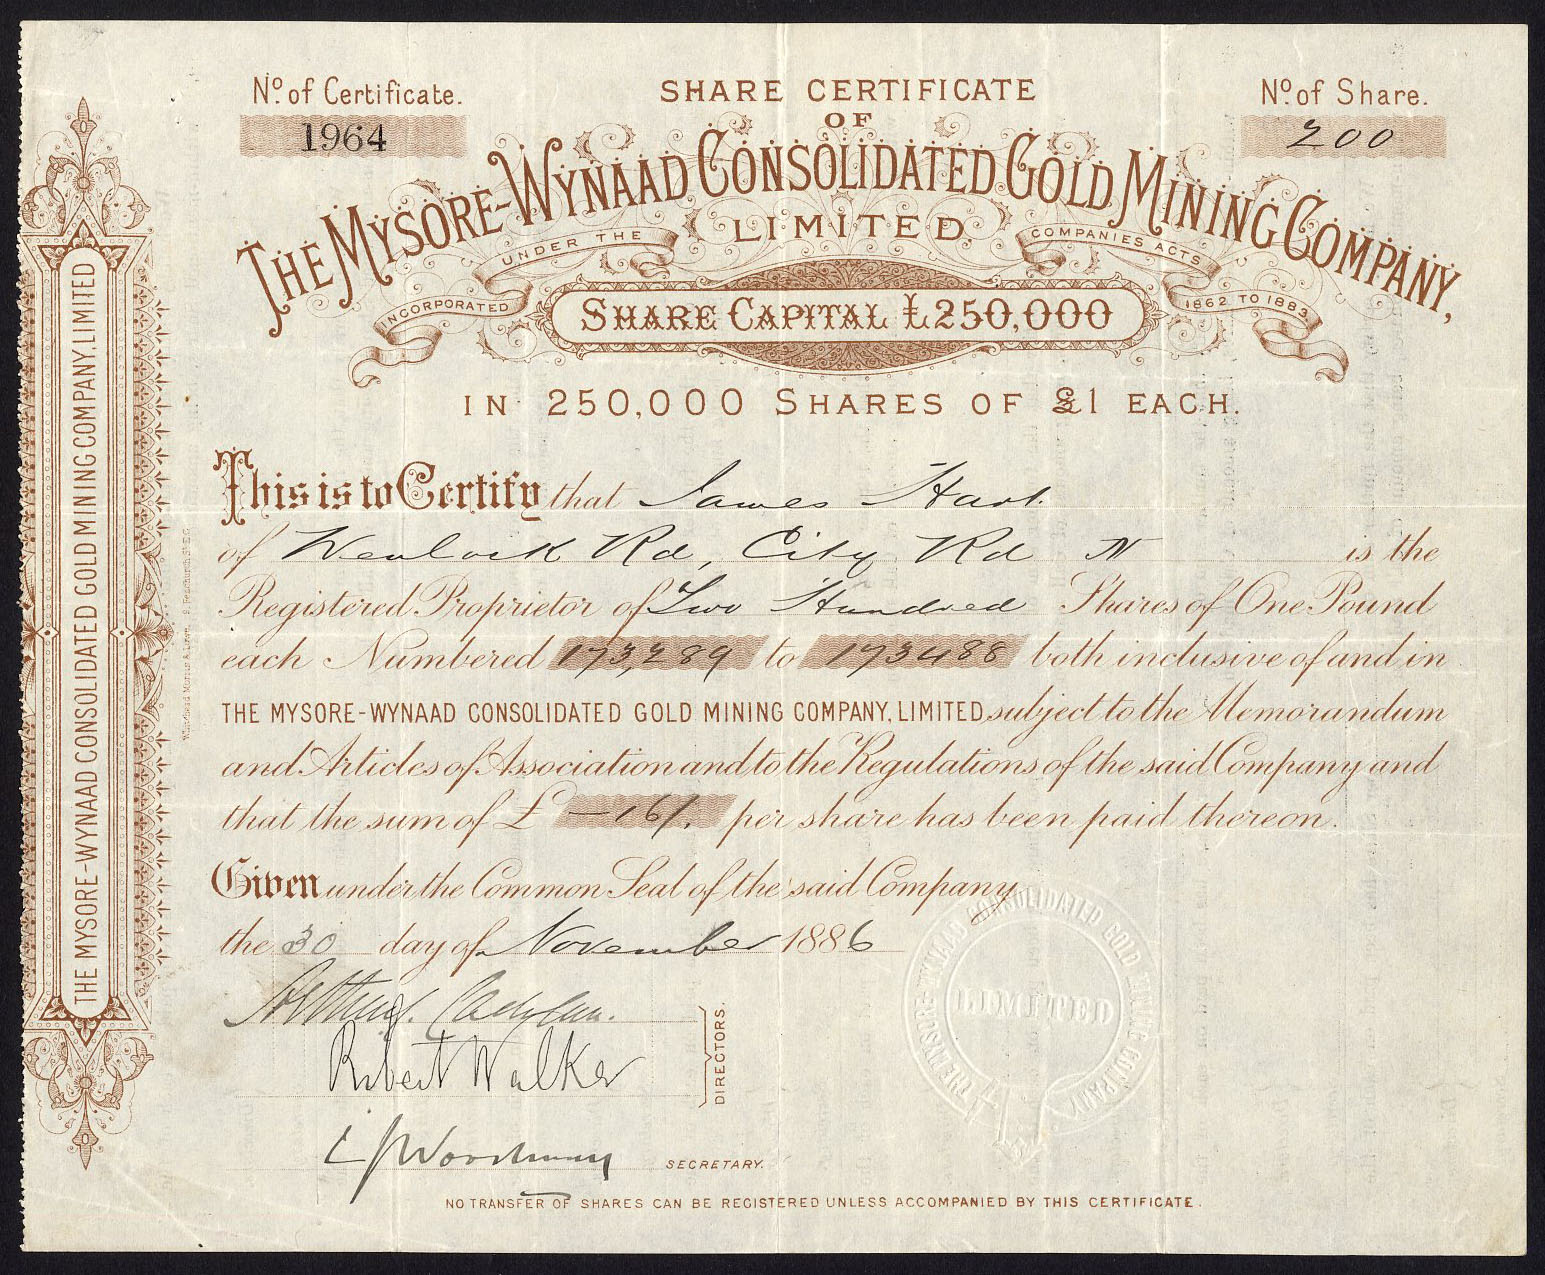 No. of Certificate.
1964
SHARE CERTIFICATE
OF
No. of Share.
200
THE MYSORE-WYNAAD CONSOLIDATED GOLD MINING COMPANY,
LIMITED.
INCORPORATED UNDER THE COMPANIES ACTS 1862 TO 1883.
SHARE CAPITAL £250,000
IN 250,000 SHARES OF £1 EACH.
This is to Certify that James Hart.
of Wenlock Rd, City Rd N is the
Registered Proprietor of Two Hundred Shares of One Pound
each Numbered 173,289 to 173488 both inclusive of and in
THE MYSORE-WYNAAD CONSOLIDATED GOLD MINING COMPANY, LIMITED, subject to the Memorandum
and Articles of Association and to the Regulations of the said Company and
that the sum of £ —16/. per share has been paid thereon.
Given under the Common Seal of the said Company
the 30 day of November 1886
Robert Walker
DIRECTORS.
SECRETARY.
NO TRANSFER OF SHARES CAN BE REGISTERED UNLESS ACCOMPANIED BY THIS CERTIFICATE.
THE MYSORE-WYNAAD CONSOLIDATED GOLD MINING COMPANY, LIMITED
THE MYSORE-WYNAAD CONSOLIDATED GOLD MINING COMPANY
LIMITED